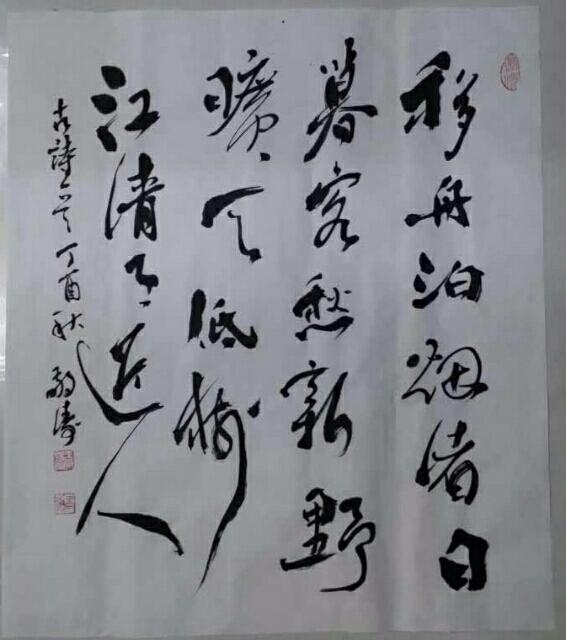 移舟泊烟渚日
暮客愁新野
旷天低树
江清月近人
古诗一首丁酉秋